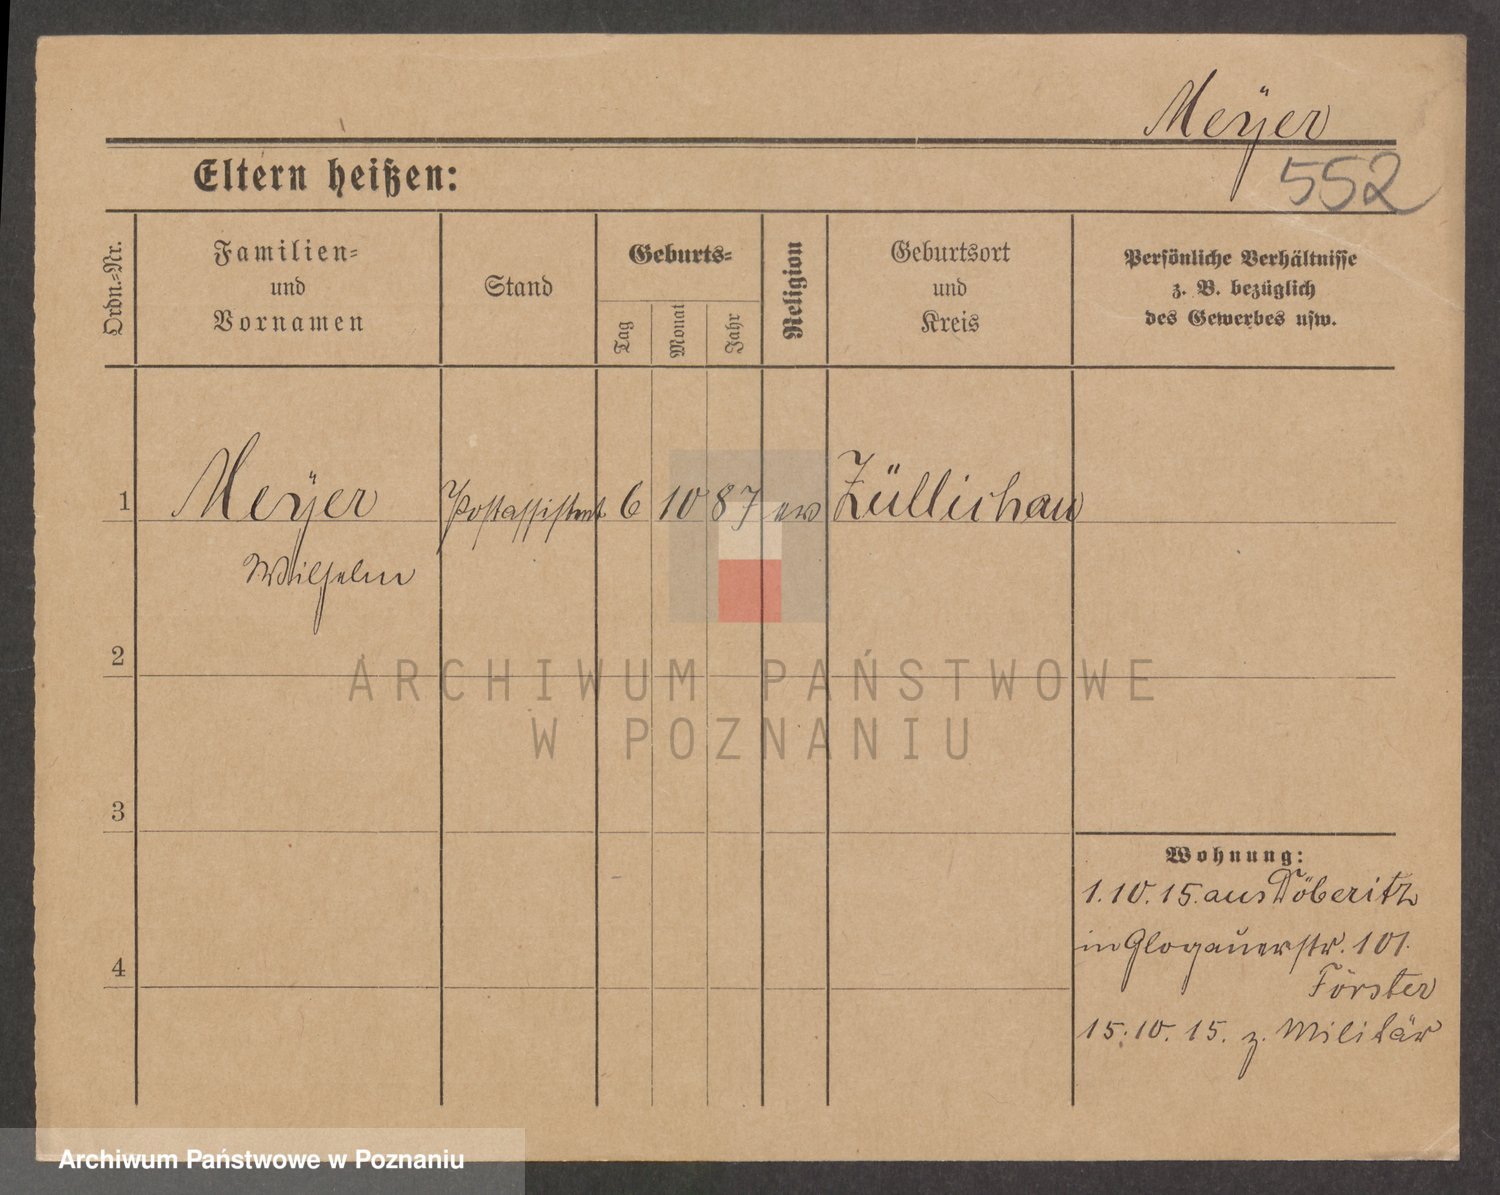 Meÿer
552
Eltern heißen:
Ordn.-Nr.
Familien-
und
Vornamen
Stand
Geburts-
Tag
Monat
Jahr
Religion
Geburtsort
und
Kreis
Persönliche Verhältnisse
z. B. bezüglich
des Gewerbes usw.
1 Meÿer Postassistent 6 10 87 ev Züllichau
Wilhelm
2
3
4
Wohnung:
1.10.15. aus Döberitz
in Glogauerstr. 101.
Förster
15.10.15. z. Militär
ARCHIWUM PAŃSTWOWE
W POZNANIU
Archiwum Państwowe w Poznaniu